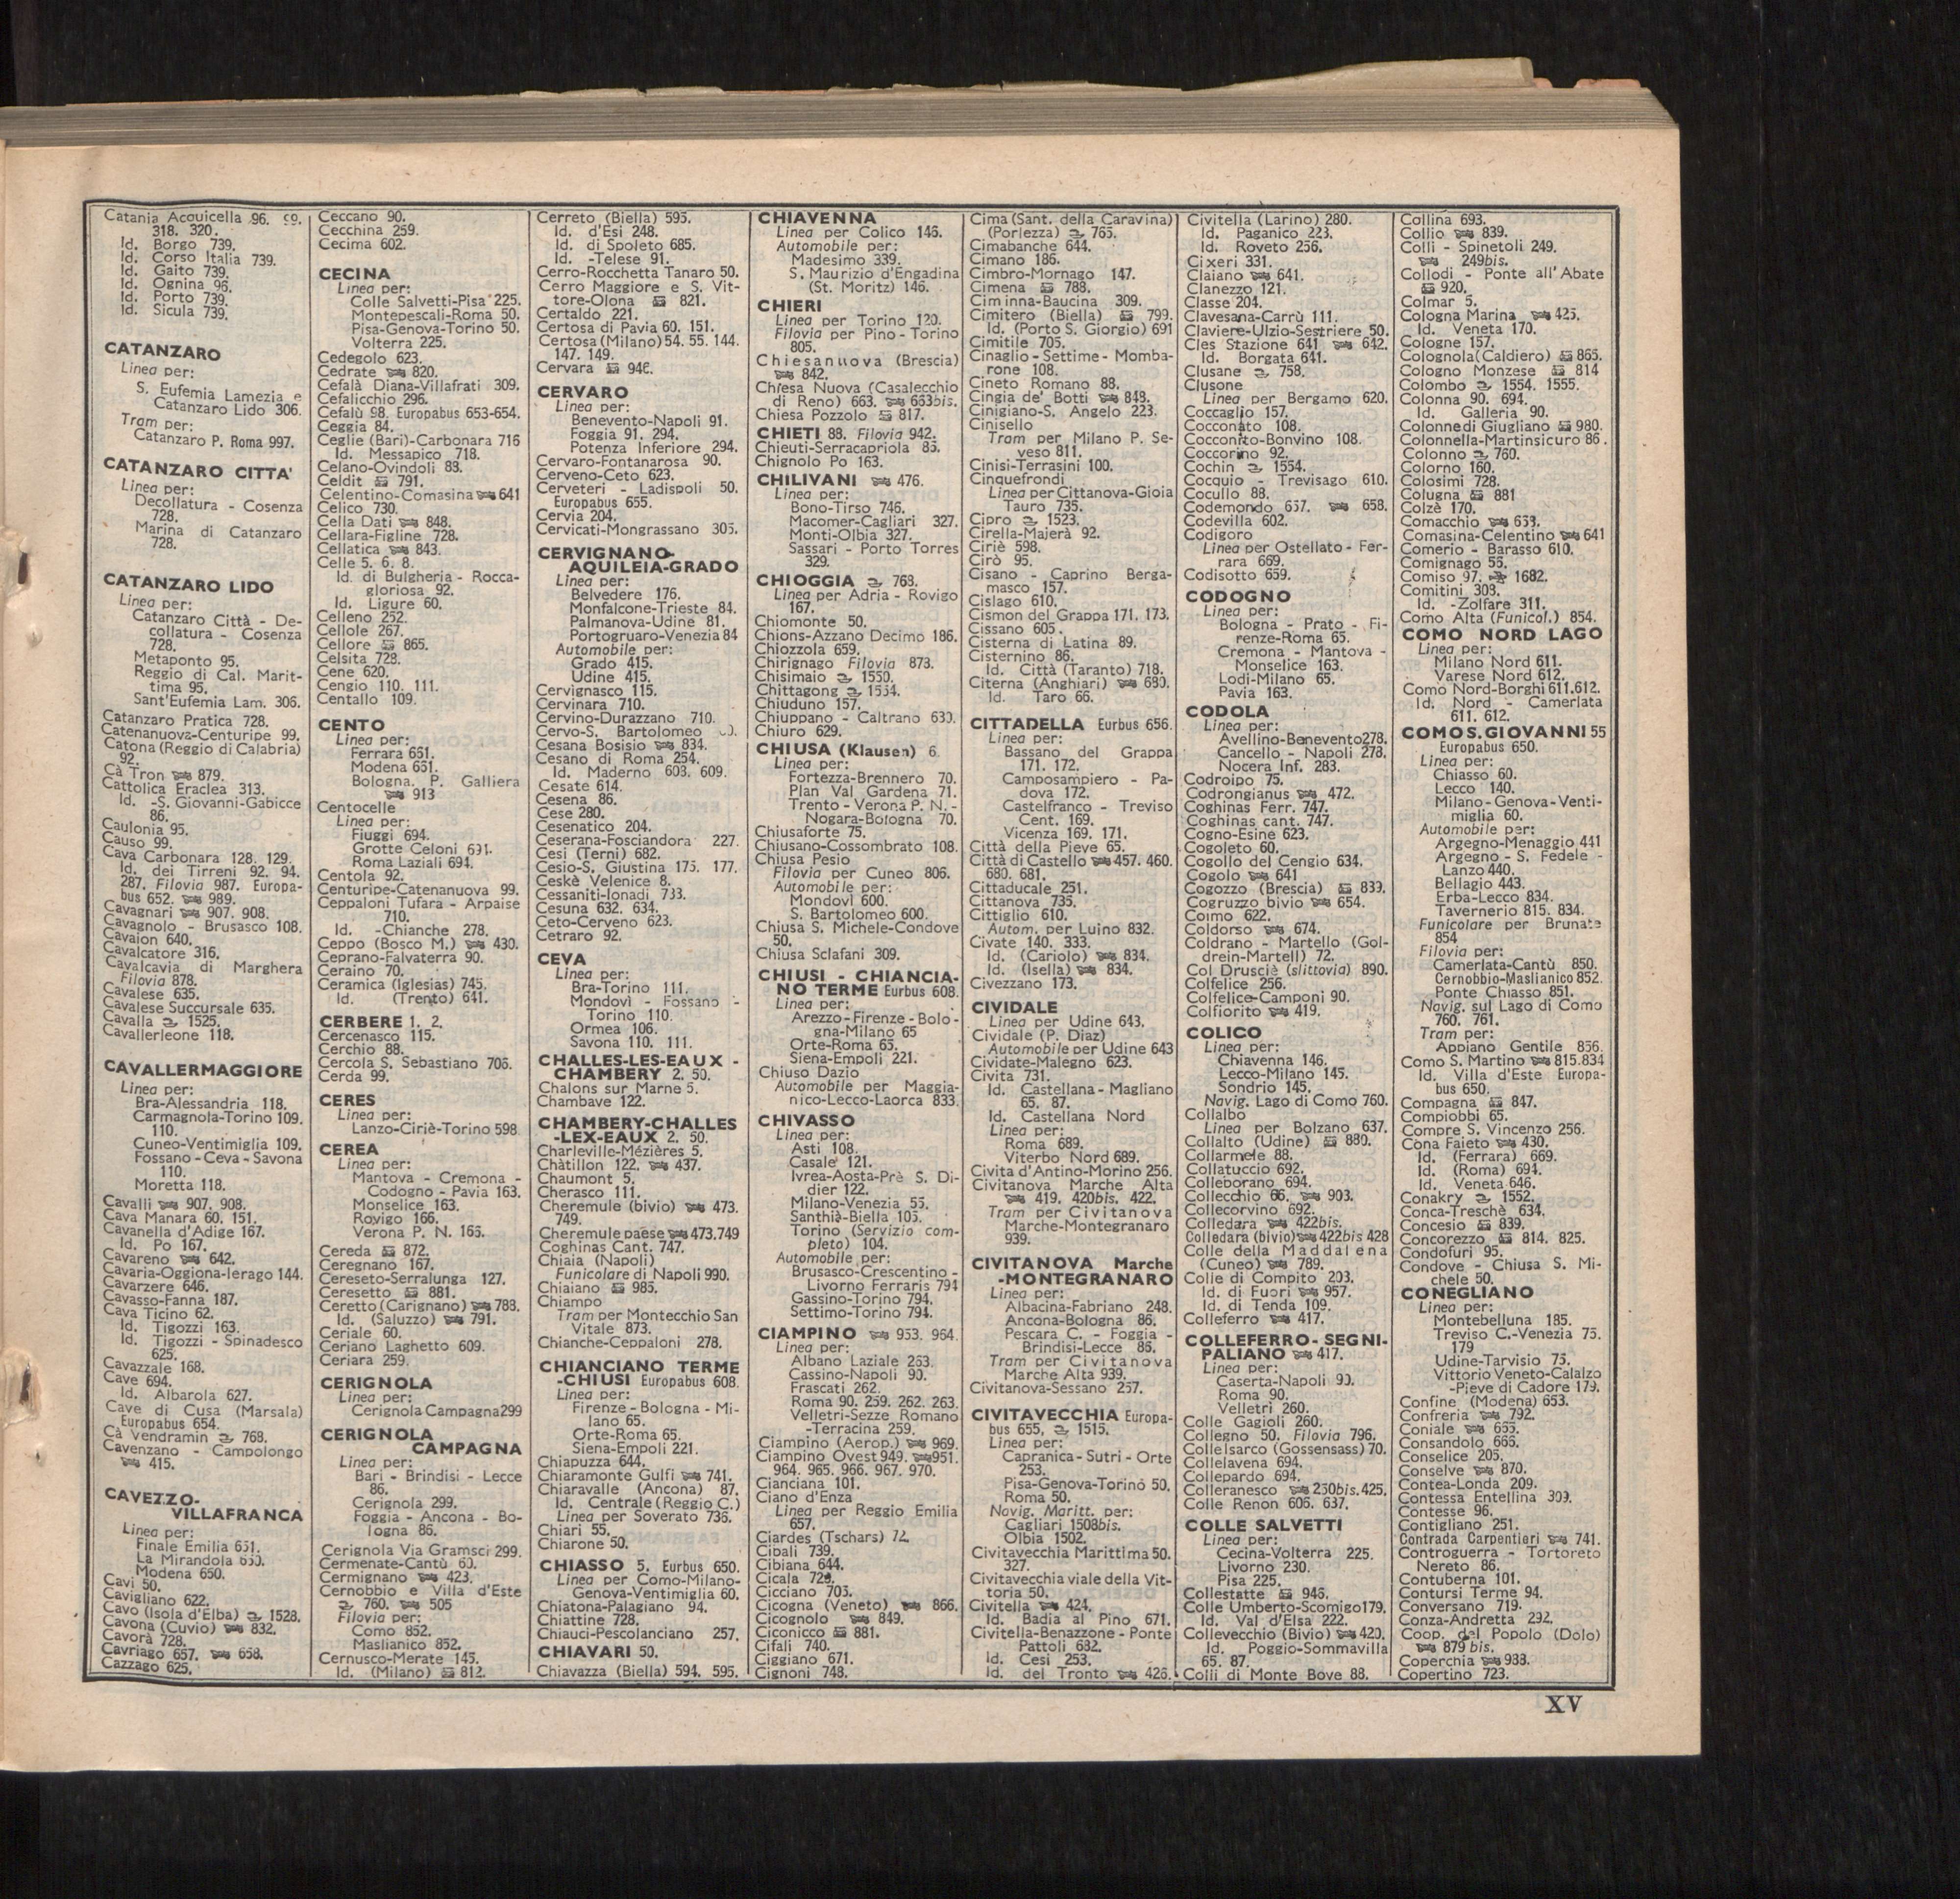 Catania Acquicella 96.
318. 320.
Id. Borgo 739.
Id. Corso Italia 739.
Id. Gaito 739.
Id. Ognina 96.
Id. Porto 739.
Id. Sicula 739.
CATANZARO
Linea per:
S. Eufemia Lamezia e
Catanzaro Lido 306.
Tram per:
Catanzaro P. Roma 997.
CATANZARO CITTA'
Linea per:
Decollatura - Cosenza
728.
Marina di Catanzaro
728.
CATANZARO LIDO
Linea per:
Catanzaro Città - De-
collatura - Cosenza
728.
Metaponto 95.
Reggio di Cal. Marit-
tima 95.
Sant'Eufemia Lam. 306.
Catanzaro Pratica 728.
Catenanuova-Centuripe 99.
Catona (Reggio di Calabria)
92.
Cà Tron 879.
Cattolica Eraclea 313.
Id. -S. Giovanni-Gabicce
86.
Caulonia 95.
Causo 99.
Cava Carbonara 128. 129.
Id. dei Tirreni 92. 94.
287. Filovia 987. Europa-
bus 652. 989.
Cavagnari 907. 908.
Cavagnolo - Brusasco 108.
Cavaion 640.
Cavalcatore 316.
Cavalcavia di Marghera
Filovia 878.
Cavalese 635.
Cavalese Succursale 635.
Cavalla 1525.
Cavallerleone 118.
CAVALLERMAGGIORE
Linea per:
Bra-Alessandria 118.
Carmagnola-Torino 109.
110.
Cuneo-Ventimiglia 109.
Fossano - Ceva - Savona
110.
Moretta 118.
Cavalli 907. 908.
Cava Manara 60. 151.
Cavanella d'Adige 167.
Id. Po 167.
Cavareno 642.
Cavaria-Oggiona-Ierago 144.
Cavarzere 646.
Cavasso-Fanna 187.
Cava Ticino 62.
Id. Tigozzi 163.
Id. Tigozzi - Spinadesco
625.
Cavazzale 168.
Cave 694.
Id. Albarola 627.
Cave di Cusa (Marsala)
Europabus 654.
Cà Vendramin 768.
Cavenzano - Campolongo
415.
CAVEZZO-
VILLAFRANCA
Linea per:
Finale Emilia 651.
La Mirandola 650.
Modena 650.
Cavi 50.
Cavigliano 622.
Cavo (Isola d'Elba) 1528.
Cavona (Cuvio) 832.
Cavorà 728.
Cavriago 657. 658.
Cazzago 625.
Ceccano 90.
Cecchina 259.
Cecima 602.
CECINA
Linea per:
Colle Salvetti-Pisa 225.
Montepescali-Roma 50.
Pisa-Genova-Torino 50.
Volterra 225.
Cedegolo 623.
Cedrate 820.
Cefalà Diana-Villafrati 309.
Cefalicchio 296.
Cefalù 98. Europabus 653-654.
Ceggia 84.
Ceglie (Bari)-Carbonara 716
Id. Messapico 718.
Celano-Ovindoli 88.
Celdit 791.
Celentino-Comasina 641
Celico 730.
Cella Dati 848.
Cellara-Figline 728.
Cellatica 843.
Celle 5. 6. 8.
Id. di Bulgheria - Rocca-
gloriosa 92.
Id. Ligure 60.
Celleno 252.
Cellole 267.
Cellore 865.
Celsita 728.
Cene 620.
Cengio 110. 111.
Centallo 109.
CENTO
Linea per:
Ferrara 651.
Modena 651.
Bologna. P. Galliera
913
Centocelle
Linea per:
Fiuggi 694.
Grotte Celoni 691.
Roma Laziali 694.
Centola 92.
Centuripe-Catenanuova 99.
Ceppaloni Tufara - Arpaise
710.
Id. -Chianche 278.
Ceppo (Bosco M.) 430.
Ceprano-Falvaterra 90.
Ceraino 70.
Ceramica (Iglesias) 745.
Id. (Trento) 641.
CERBERE 1. 2.
Cercenasco 115.
Cerchio 88.
Cercola S. Sebastiano 706.
Cerda 99.
CERES
Linea per:
Lanzo-Ciriè-Torino 598
CEREA
Linea per:
Mantova - Cremona -
Codogno - Pavia 163.
Monselice 163.
Rovigo 166.
Verona P. N. 166.
Cereda 872.
Ceregnano 167.
Cereseto-Serralunga 127.
Ceresetto 881.
Ceretto (Carignano) 788.
Id. (Saluzzo) 791.
Ceriale 60.
Ceriano Laghetto 609.
Ceriara 259.
CERIGNOLA
Linea per:
Cerignola Campagna 299
CERIGNOLA
CAMPAGNA
Linea per:
Bari - Brindisi - Lecce
86.
Cerignola 299.
Foggia - Ancona - Bo-
logna 86.
Cerignola Via Gramsci 299.
Cermenate-Cantù 60.
Cermignano 423.
Cernobbio e Villa d'Este
760. 505
Filovia per:
Como 852.
Maslianico 852.
Cernusco-Merate 145.
Id. (Milano) 812.
Cerreto (Biella) 595.
Id. d'Esi 248.
Id. di Spoleto 685.
Id. -Telese 91.
Cerro-Rocchetta Tanaro 50.
Cerro Maggiore e S. Vit-
tore-Olona 821.
Certaldo 221.
Certosa di Pavia 60. 151.
Certosa (Milano) 54. 55. 144.
147. 149.
Cervara 946.
CERVARO
Linea per:
Benevento-Napoli 91.
Foggia 91. 294.
Potenza Inferiore 294.
Cervaro-Fontanarosa 90.
Cerveno-Ceto 623.
Cerveteri - Ladispoli 50.
Europabus 655.
Cervia 204.
Cervicati-Mongrassano 305.
CERVIGNANO-
AQUILEIA-GRADO
Linea per:
Belvedere 176.
Monfalcone-Trieste 84.
Palmanova-Udine 81.
Portogruaro-Venezia 84
Automobile per:
Grado 415.
Udine 415.
Cervignasco 115.
Cervinara 710.
Cervino-Durazzano 710.
Cervo-S. Bartolomeo
Cesana Bosisio 834.
Cesano di Roma 254.
Id. Maderno 608. 609.
Cesate 614.
Cesena 86.
Cese 280.
Cesenatico 204.
Ceserana-Fosciandora 227.
Cesi (Terni) 682.
Cesio-S. Giustina 175. 177.
Ceskè Velenice 8.
Cessaniti-Ionadi 733.
Cesuna 632. 634.
Ceto-Cerveno 623.
Cetraro 92.
CEVA
Linea per:
Bra-Torino 111.
Mondovì - Fossano -
Torino 110.
Ormea 106.
Savona 110. 111.
CHALLES-LES-EAUX -
CHAMBERY 2. 50.
Chalons sur Marne 5.
Chambave 122.
CHAMBERY-CHALLES
-LEX-EAUX 2. 50.
Charleville-Mézières 5.
Châtillon 122. 437.
Chaumont 5.
Cherasco 111.
Cheremule (bivio) 473.
749.
Cheremule paese 473.749
Coghinas Cant. 747.
Chiaia (Napoli)
Funicolare di Napoli 990.
Chiaiano 985.
Chiampo
Tram per Montecchio San
Vitale 873.
Chianche-Ceppaloni 278.
CHIANCIANO TERME
-CHIUSI Europabus 608.
Linea per:
Firenze - Bologna - Mi-
lano 65.
Orte-Roma 65.
Siena-Empoli 221.
Chiapuzza 644.
Chiaramonte Gulfi 741.
Chiaravalle (Ancona) 87.
Id. Centrale (Reggio C.)
Linea per Soverato 736.
Chiari 55.
Chiarone 50.
CHIASSO 5. Eurbus 650.
Linea per Como-Milano-
Genova-Ventimiglia 60.
Chiatona-Palagiano 94.
Chiattine 728.
Chiauci-Pescolanciano 257.
CHIAVARI 50.
Chiavazza (Biella) 594. 595.
CHIAVENNA
Linea per Colico 146.
Automobile per:
Madesimo 339.
S. Maurizio d'Engadina
(St. Moritz) 146.
CHIERI
Linea per Torino 120.
Filovia per Pino - Torino
805.
Chiesanuova (Brescia)
842.
Chiesa Nuova (Casalecchio
di Reno) 663. 663bis.
Chiesa Pozzolo 817.
CHIETI 88. Filovia 942.
Chieuti-Serracapriola 85.
Chignolo Po 163.
CHILIVANI 476.
Linea per:
Bono-Tirso 746.
Macomer-Cagliari 327.
Monti-Olbia 327.
Sassari - Porto Torres
329.
CHIOGGIA 768.
Linea per Adria - Rovigo
167.
Chiomonte 50.
Chions-Azzano Decimo 186.
Chiozzola 659.
Chirignago Filovia 873.
Chisimaio 1550.
Chittagong 1554.
Chiuduno 157.
Chiuppano - Caltrano 630.
Chiuro 629.
CHIUSA (Klausen) 6
Linea per:
Fortezza-Brennero 70.
Plan Val Gardena 71.
Trento - Verona P. N. -
Nogara-Bologna 70.
Chiusaforte 75.
Chiusano-Cossombrato 108.
Chiusa Pesio
Filovia per Cuneo 806.
Automobile per:
Mondovì 600.
S. Bartolomeo 600.
Chiusa S. Michele-Condove
50.
Chiusa Sclafani 309.
CHIUSI - CHIANCIA-
NO TERME Eurbus 608.
Linea per:
Arezzo - Firenze - Bolo-
gna-Milano 65
Orte-Roma 65.
Siena-Empoli 221.
Chiuso Dazio
Automobile per Maggia-
nico-Lecco-Laorca 833.
CHIVASSO
Linea per:
Asti 108.
Casale 121.
Ivrea-Aosta-Prè S. Di-
dier 122.
Milano-Venezia 55.
Santhià-Biella 105.
Torino (Servizio com-
pleto) 104.
Automobile per:
Brusasco-Crescentino -
Livorno Ferraris 794
Gassino-Torino 794.
Settimo-Torino 794.
CIAMPINO 953. 964.
Linea per:
Albano Laziale 263.
Cassino-Napoli 90.
Frascati 262.
Roma 90. 259. 262. 263.
Velletri-Sezze Romano
-Terracina 259.
Ciampino (Aerop.) 969.
Ciampino Ovest 949. 951.
964. 965. 966. 967. 970.
Cianciana 101.
Ciano d'Enza
Linea per Reggio Emilia
657.
Ciardes (Tschars) 72.
Cibali 739.
Cibiana 644.
Cicala 729.
Cicciano 705.
Cicogna (Veneto) 866.
Cicognolo 849.
Ciconicco 881.
Cifali 740.
Ciggiano 671.
Cignoni 748.
Cima (Sant. della Caravina)
(Porlezza) 765.
Cimabanche 644.
Cimano 186.
Cimbro-Mornago 147.
Cimena 788.
Ciminna-Baucina 309.
Cimitero (Biella) 799.
Id. (Porto S. Giorgio) 691
Cimitile 705.
Cinaglio - Settime - Momba-
rone 108.
Cineto Romano 88.
Cingia de' Botti 848.
Cinigiano-S. Angelo 223.
Cinisello
Tram per Milano P. Se-
veso 811.
Cinisi-Terrasini 100.
Cinquefrondi
Linea per Cittanova-Gioia
Tauro 735.
Cipro 1523.
Cirella-Majerà 92.
Ciriè 598.
Cirò 95.
Cisano - Caprino Berga-
masco 157.
Cislago 610.
Cismon del Grappa 171. 173.
Cissano 605.
Cisterna di Latina 89.
Cisternino 86.
Id. Città (Taranto) 718.
Citerna (Anghiari) 680.
Id. Taro 66.
CITTADELLA Eurbus 656.
Linea per:
Bassano del Grappa
171. 172.
Camposampiero - Pa-
dova 172.
Castelfranco - Treviso
Cent. 169.
Vicenza 169. 171.
Città della Pieve 65.
Città di Castello 457. 460.
680. 681.
Cittaducale 251.
Cittanova 735.
Cittiglio 610.
Autom. per Luino 832.
Civate 140. 333.
Id. (Cariolo) 834.
Id. (Isella) 834.
Civezzano 173.
CIVIDALE
Linea per Udine 643.
Cividale (P. Diaz)
Automobile per Udine 643
Cividate-Malegno 623.
Civita 731.
Id. Castellana - Magliano
65. 87.
Id. Castellana Nord
Linea per:
Roma 689.
Viterbo Nord 689.
Civita d'Antino-Morino 256.
Civitanova Marche Alta
419. 420bis. 422.
Tram per Civitanova
Marche-Montegranaro
939.
CIVITANOVA Marche
-MONTEGRANARO
Linea per:
Albacina-Fabriano 248.
Ancona-Bologna 86.
Pescara C. - Foggia -
Brindisi-Lecce 86.
Tram per Civitanova
Marche Alta 939.
Civitanova-Sessano 257.
CIVITAVECCHIA Europa-
bus 655, 1515.
Linea per:
Capranica - Sutri - Orte
253.
Pisa-Genova-Torino 50.
Roma 50.
Navig. Maritt. per:
Cagliari 1508bis.
Olbia 1502.
Civitavecchia Marittima 50.
327.
Civitavecchia viale della Vit-
toria 50.
Civitella 424.
Id. Badia al Pino 671.
Civitella-Benazzone - Ponte
Pattoli 682.
Id. Cesi 253.
Id. del Tronto 426.
Civitella (Larino) 280.
Id. Paganico 223.
Id. Roveto 256.
Cixeri 331.
Claiano 641.
Clanezzo 121.
Classe 204.
Clavesana-Carrù 111.
Claviere-Ulzio-Sestriere 50.
Cles Stazione 641 642.
Id. Borgata 641.
Clusane 758.
Clusone
Linea per Bergamo 620.
Coccaglio 157.
Cocconato 108.
Cocconito-Bonvino 108.
Coccorino 92.
Cochin 1554.
Cocquio - Trevisago 610.
Cocullo 88.
Codemondo 657. 658.
Codevilla 602.
Codigoro
Linea per Ostellato - Fer-
rara 669.
Codisotto 659.
CODOGNO
Linea per:
Bologna - Prato - Fi-
renze-Roma 65.
Cremona - Mantova -
Monselice 163.
Lodi-Milano 65.
Pavia 163.
CODOLA
Linea per:
Avellino-Benevento 278.
Cancello - Napoli 278.
Nocera Inf. 283.
Codroipo 75.
Codrongianus 472.
Coghinas Ferr. 747.
Coghinas cant. 747.
Cogno-Esine 623.
Cogoleto 60.
Cogollo del Cengio 634.
Cogolo 641
Cogozzo (Brescia) 839.
Cogruzzo bivio 654.
Coimo 622.
Coldorso 674.
Coldrano - Martello (Gol-
drein-Martell) 72.
Col Drusciè (slittovia) 890.
Colfelice 256.
Colfelice-Camponi 90.
Colfiorito 419.
COLICO
Linea per:
Chiavenna 146.
Lecco-Milano 145.
Sondrio 145.
Navig. Lago di Como 760.
Collalbo
Linea per Bolzano 637.
Collalto (Udine) 880.
Collarmele 88.
Collatuccio 692.
Colleborano 694.
Collecchio 66. 903.
Collecorvino 692.
Colledara 422bis.
Colledara (bivio) 422bis 428
Colle della Maddalena
(Cuneo) 789.
Colle di Compito 203.
Id. di Fuori 957.
Id. di Tenda 109.
Colleferro 417.
COLLEFERRO - SEGNI-
PALIANO 417.
Linea per:
Caserta-Napoli 90.
Roma 90.
Velletri 260.
Colle Gagioli 260.
Collegno 50. Filovia 796.
Collelsarco (Gossensass) 70.
Collelavena 694.
Collepardo 694.
Colleranesco 250bis. 425.
Colle Renon 606. 637.
COLLE SALVETTI
Linea per:
Cecina-Volterra 225.
Livorno 230.
Pisa 225.
Collestatte 946.
Colle Umberto-Scomigo 179.
Id. Val d'Elsa 222.
Collevecchio (Bivio) 420.
Id. Poggio-Sommavilla
65. 87.
Colli di Monte Bove 88.
Collina 693.
Collio 839.
Colli - Spinetoli 249.
249bis.
Collodi - Ponte all'Abate
920.
Colmar 5.
Cologna Marina 425.
Id. Veneta 170.
Cologne 157.
Colognola (Caldiero) 865.
Cologno Monzese 814
Colombo 1554. 1555.
Colonna 90. 694.
Id. Galleria 90.
Colonne di Giugliano 980.
Colonnella-Martinsicuro 86.
Colonno 760.
Colorno 160.
Colosimi 728.
Colugna 881
Colzè 170.
Comacchio 653.
Comasina-Celentino 641
Comerio - Barasso 610.
Comignago 55.
Comiso 97. 1682.
Comitini 308.
Id. -Zolfare 311.
Como Alta (Funicol.) 854.
COMO NORD LAGO
Linea per:
Milano Nord 611.
Varese Nord 612.
Como Nord-Borghi 611.612.
Id. Nord - Camerlata
611. 612.
COMO S. GIOVANNI 55
Europabus 650.
Linea per:
Chiasso 60.
Lecco 140.
Milano - Genova - Venti-
miglia 60.
Automobile per:
Argegno-Menaggio 441
Argegno - S. Fedele -
Lanzo 440.
Bellagio 443.
Erba-Lecco 834.
Tavernerio 815. 834.
Funicolare per Brunate
854
Filovia per:
Camerlata-Cantù 850.
Cernobbio-Maslianico 852.
Ponte Chiasso 851.
Navig. sul Lago di Como
760. 761.
Tram per:
Appiano Gentile 856.
Como S. Martino 815.834
Id. Villa d'Este Europa-
bus 650.
Compagna 847.
Compiobbi 65.
Compre S. Vincenzo 256.
Cona Faieto 430.
Id. (Ferrara) 669.
Id. (Roma) 694.
Id. Veneta 646.
Conakry 1552.
Conca-Treschè 634.
Concesio 839.
Concorezzo 814. 825.
Condofuri 95.
Condove - Chiusa S. Mi-
chele 50.
CONEGLIANO
Linea per:
Montebelluna 185.
Treviso C.-Venezia 75.
179
Udine-Tarvisio 75.
Vittorio Veneto-Calalzo
-Pieve di Cadore 179.
Confine (Modena) 653.
Confreria 792.
Coniale 655.
Consandolo 666.
Conselice 205.
Conselve 870.
Contea-Londa 209.
Contessa Entellina 309.
Contesse 96.
Contigliano 251.
Contrada Carpentieri 741.
Controguerra - Tortoreto
Nereto 86.
Contuberna 101.
Contursi Terme 94.
Conversano 719.
Conza-Andretta 292.
Coop. del Popolo (Dolo)
879 bis.
Coperchia 988.
Copertino 723.
XV